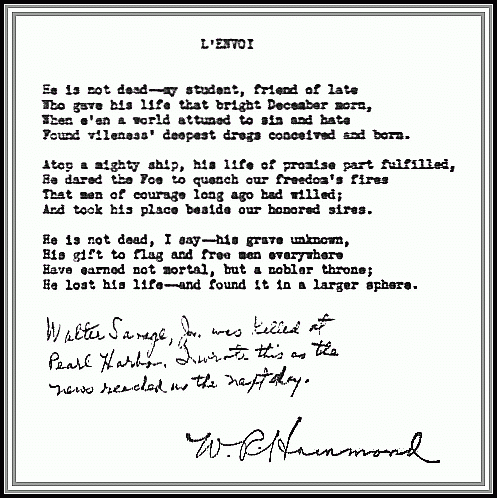 L'ENVOI
He is not dead—my student, friend of late
Who gave his life that bright December morn,
When e'en a world attuned to sin and hate
Found vileness' deepest dregs conceived and born.
Atop a mighty ship, his life of promise part fulfilled,
He dared the Foe to quench our freedom's fires
That men of courage long ago had willed;
And took his place beside our honored sires.
He is not dead, I say—his grave unknown,
His gift to flag and free men everywhere
Have earned not mortal, but a nobler throne;
He lost his life—and found it in a larger sphere.
Walter Savage, Jr. was killed at
Pearl Harbor. I wrote this as the
news reached us the next day.
W. P. Hammond